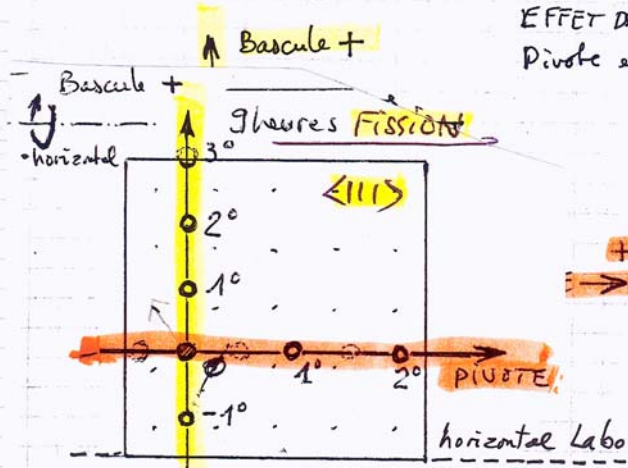 EFFET D
Bascule +
Pivote e
Bascule +
9 heures FISSION
horizontal
3°
<111>
2°
1°
+
0
1°
2°
PIVOTE
-1°
horizontal Labo